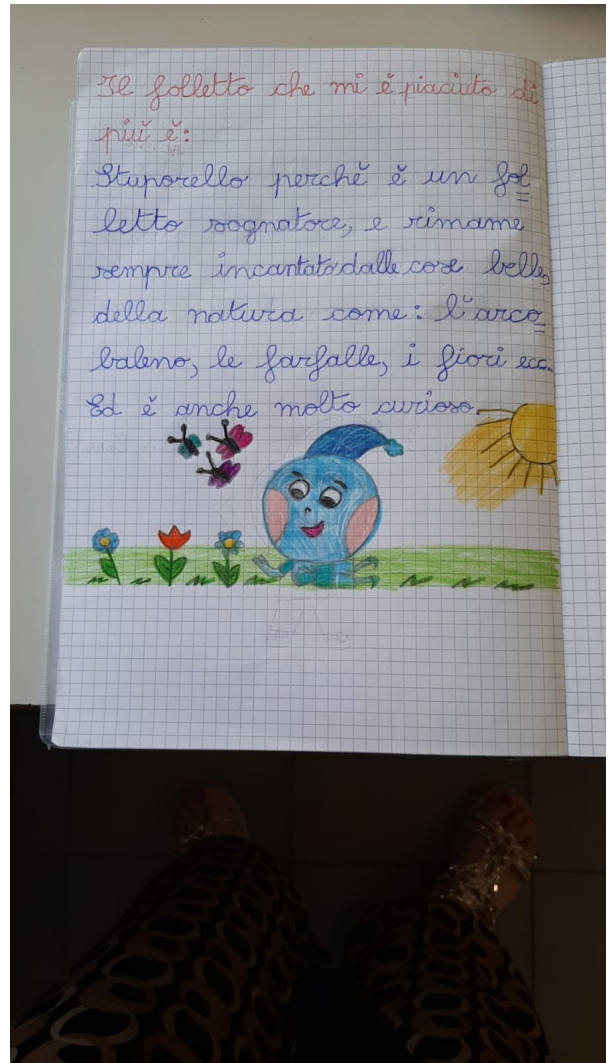 Il folletto che mi è piaciuto di
più è:
Stuporello perchè è un fol
letto sognatore, e rimame
sempre incantato dalle cose belle,
della natura come: l'arco
baleno, le farfalle, i fiori ecc.
Ed è anche molto curioso.